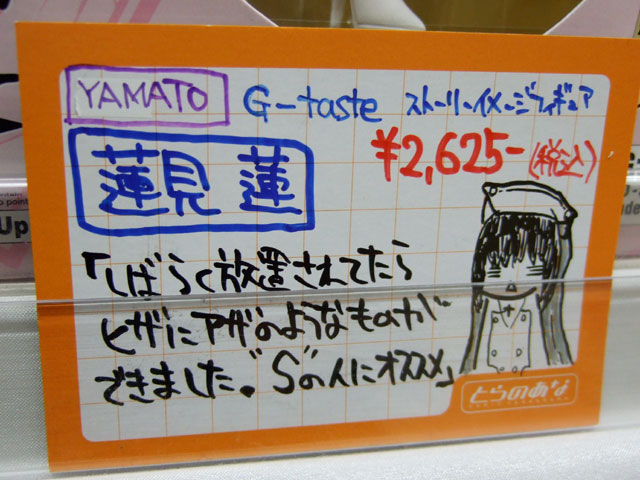 YAMATO G-taste ストーリーイメージフィギュア
¥2,625-(税込)
蓮見 蓮
「しばらく放置されてたら
ヒザにアザのようなものが
できました。"S"の人にオススメ」
とらのあな
Up